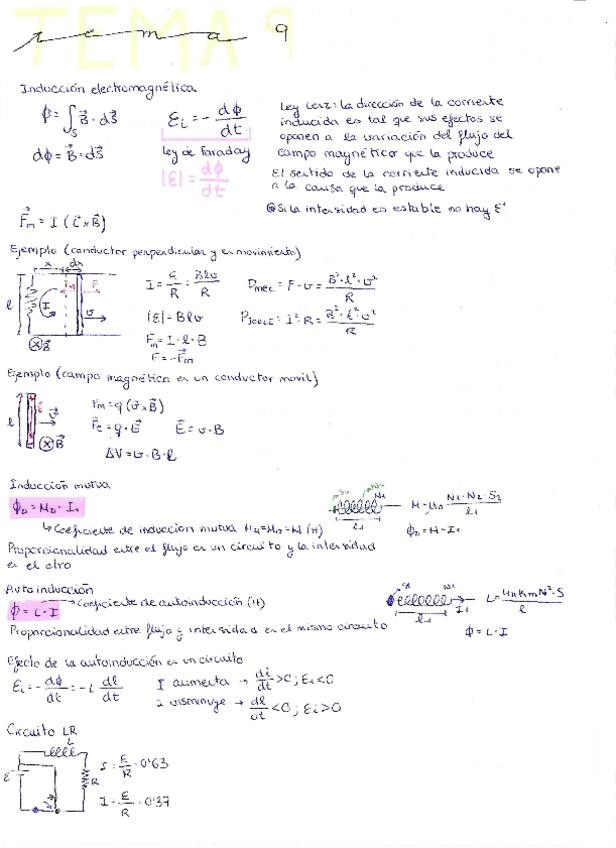 TEMA 9
tema 9
Inducción electromagnética
ϕ = ∫s B⃗ · dS⃗
εi = - dϕ/dt
dϕ = B⃗ · dS⃗
Ley de Faraday
|ε| = dϕ/dt
Ley Lenz: la dirección de la corriente
inducida es tal que sus efectos se
oponen a la variación del flujo del
campo magnético que la produce
El sentido de la corriente inducida se opone
a la causa que la produce
Si la intensidad es estable no hay ε
F⃗m = I (L⃗ x B⃗)
Ejemplo (conductor perpendicular y en movimiento)
x dx
l I F v
B⃗
I = ε/R = Blv/R
|ε| = Blv
Fm = I · l · B
F = -F⃗m
Pmec = F · v = B² · l² · v²/R
Pjoule = I² · R = B² · l² · v²/R
Ejemplo (campo magnético en un conductor movil)
l v⃗ B⃗
Fm = q (v⃗ x B⃗)
F⃗e = q · E⃗ E = v · B
ΔV = v · B · l
Inducción mutua
N1
l1
M = μ0 N1 · N2 · S2/l1
ϕ2 = M2 · I1
ϕ2 = M · I1
↳ Coeficiente de induccion mutua (H)
Proporcionalidad entre el flujo en un circuito y la intensidad
en el otro
Autoinducción
ϕ = L · I → Coeficiente de autoinducción (H)
l1 I1
L = μ0 Km N² · S/l
ϕ = L · I
Proporcionalidad entre flujo y intensidad en el mismo circuito
Efecto de la autoinducción en un circuito
εi = - dϕ/dt = -L dI/dt
I aumenta → di/dt > 0 ; εi < 0
I disminuye → dI/dt < 0 ; εi > 0
Circuito LR
L
ε R
I = ε/R · 0'63
I = ε/R · 0'37